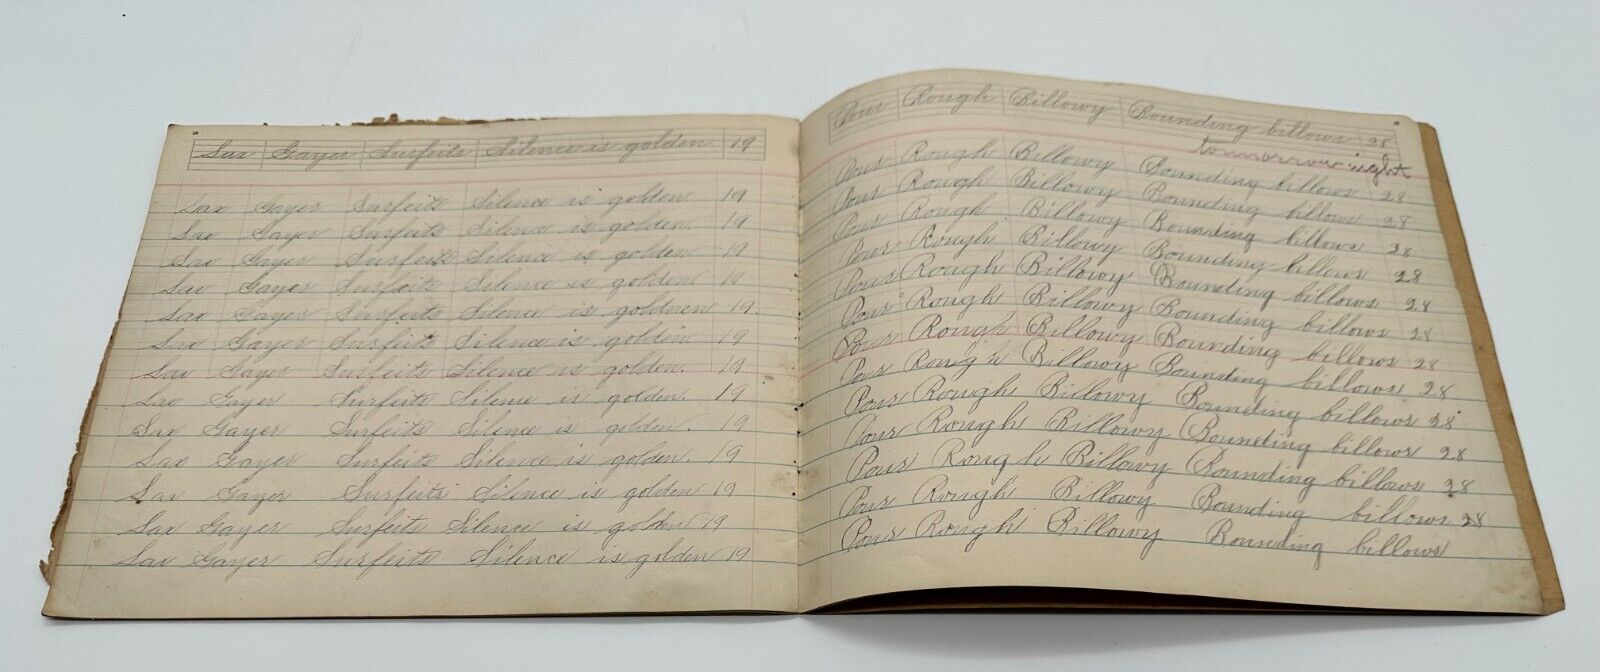 Sax Gayer Surfeits Silence is golden 19
Sax Gayer Surfeits Silence is golden. 19
Sax Gayer Surfeits Silence is golden. 19
Sax Gayer Surfeits Silence is golden. 19
Sax Gayer Surfeits Silence is golden 19
Sax Gayer Surfeits Silence is golden 19.
Sax Gayer Surfeits Silence is golden. 19
Sax Gayer Surfeits Silence is golden. 19
Sax Gayer Surfeits Silence is golden. 19
Sax Gayer Surfeits Silence is golden. 19
Sax Gayer Surfeits Silence is golden. 19
Sax Gayer Surfeits Silence is golden 19
Sax Gayer Surfeits Silence is golden 19
Sax Gayer Surfeits Silence is golden 19
Pour Rough Billowy Bounding billows 28
tomorrow night
Pour Rough Billowy Bounding billows 28
Pour Rough Billowy Bounding billows 28
Pour Rough Billowy Bounding billows 28
Pour Rough Billowy Bounding billows 28
Pour Rough Billowy Bounding billows 28
Pour Rough Billowy Bounding billows 28
Pour Rough Billowy Bounding billows 28
Pour Rough Billowy Bounding billows 28
Pour Rough Billowy Bounding billows 28
Pour Rough Billowy Bounding billows 28
Pour Rough Billowy Bounding billows 28
Pour Rough Billowy Bounding billows 28
Pour Rough Billowy Bounding billows